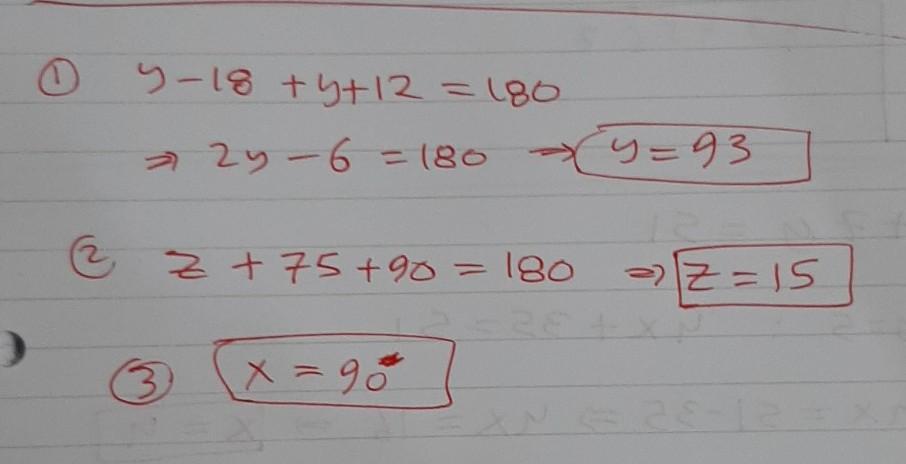 ① y-18 +y+12 = 180
⇒ 2y - 6 = 180 → y = 93
② z + 75 + 90 = 180 ⇒ z = 15
③ x = 90°